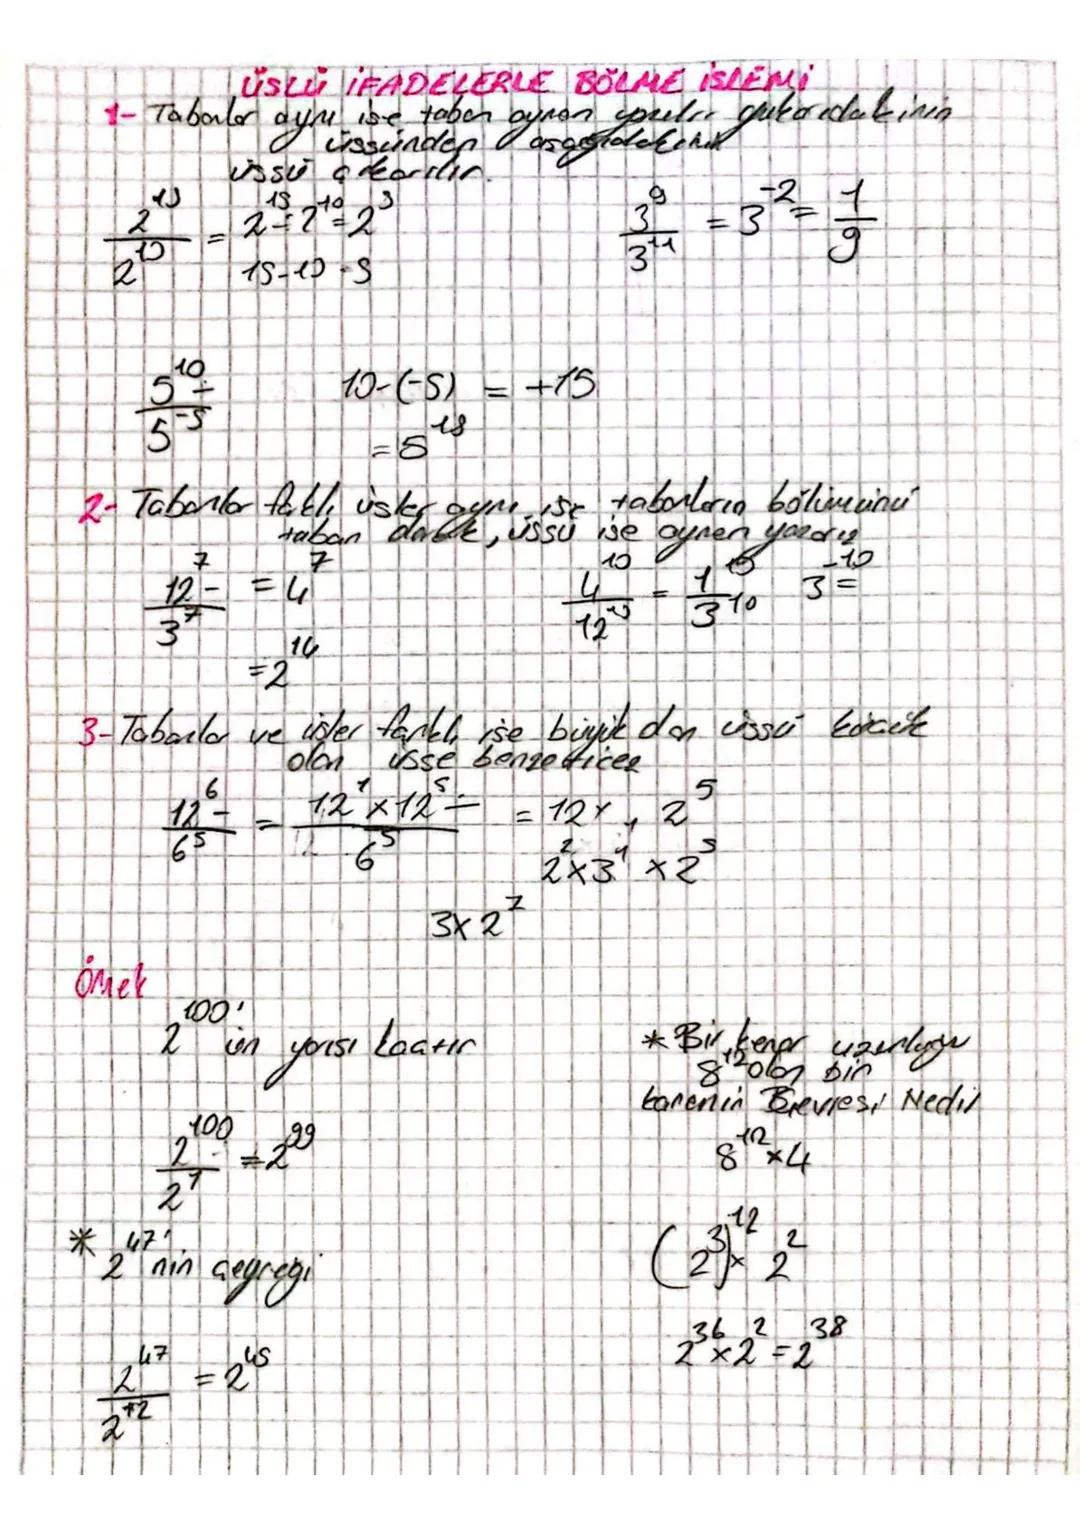 ÜSLÜ İFADELERLE BÖLME İSLEMİ
1- Tabanlar aynı ise taban aynen yazılır yukarıdakinin
üssünden aşağıdakinin
üssü çıkarılır.
2^15 / 2^10 = 2^15 ÷ 2^10 = 2^5
15-10=5
3^9 / 3^11 = 3^-2 = 1/9
5^10 ÷ / 5^-5
10-(-5) = +15
= 5^15
2- Tabanlar faklı üsler aynı ise tabanların bölümünü
taban darak, üssü ise aynen yazarız
12^7 ÷ / 3^7 = 4^7
= 2^14
4^10 / 12^10 = 1^10 / 3^10 3^-10 =
3- Tabanlar ve üsler farklı ise büyük olan üssü küçük
olan üsse benzeticez
12^6 ÷ / 6^5 = 12^1 x 12^5 ÷ / 6^5 = 12^1 x 2^5
2^2 x 3^1 x 2^5
3x2^7
Örnek
2^100' ün yarısı kaçtır
2^100 ÷ / 2^1 = 2^99
* 2^47' nin çeyreği
2^47 / 2^+2 = 2^45
* Bir kenar uzunluğu
8^12 olan bir
karenin Çevresi Nedir
8^12 x 4
(2^3)^12 x 2^2
2^36 x 2^2 = 2^38